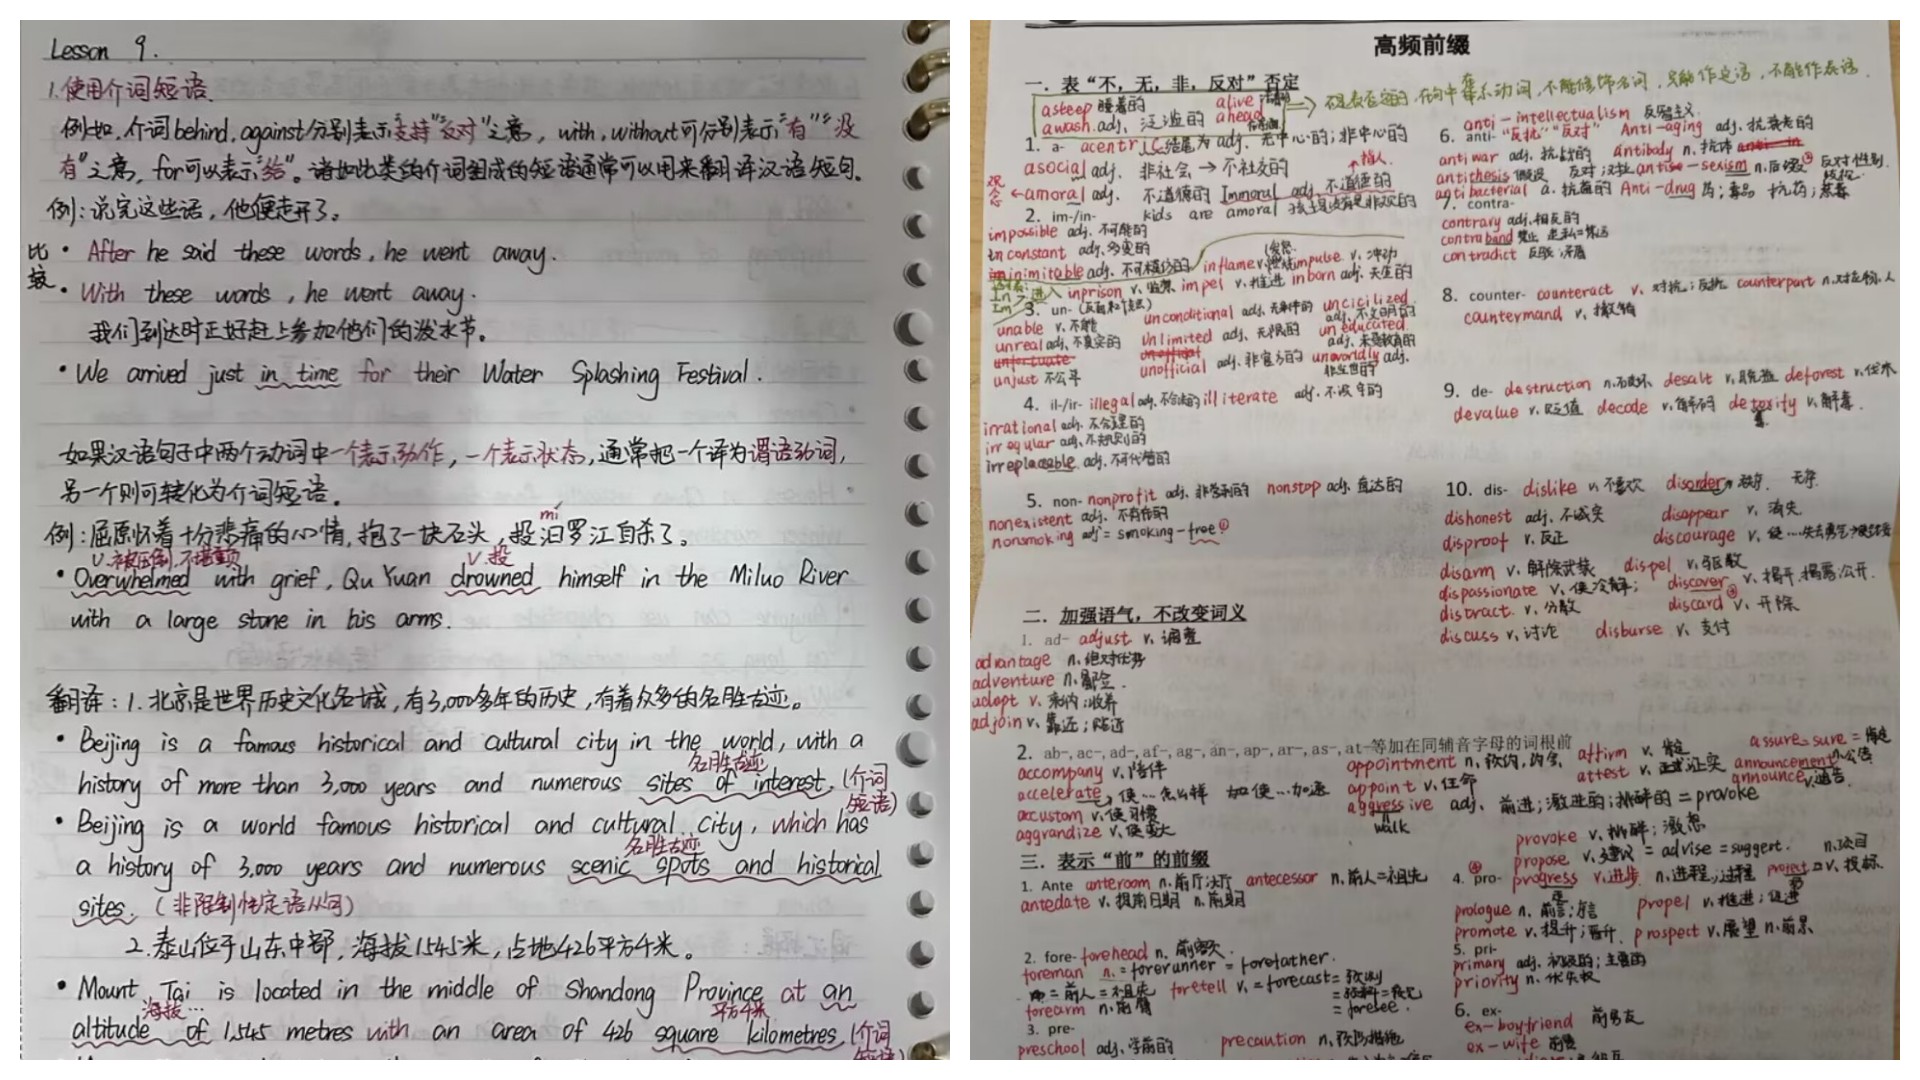 Lesson 9.
1.使用介词短语.
例如,介词behind, against分别表示"支持""反对"之意, with, without可分别表示"有""没
有"之意, for可以表示"给"。诸如此类的介词组成的短语通常可以用来翻译汉语短句.
例:说完这些话,他便走开了。
比较
• After he said these words, he went away.
• With these words, he went away.
我们到达时正好赶上参加他们的泼水节。
• We arrived just in time for their Water Splashing Festival.
如果汉语句子中两个动词中一个表示动作,一个表示状态,通常把一个译为谓语动词,
另一个则可转化为介词短语。
mì
例:屈原怀着十分悲痛的心情,抱了一块石头,投汨罗江自杀了。
V.被压倒,不堪重负 V.投
• Overwhelmed with grief, Qu Yuan drowned himself in the Miluo River
with a large stone in his arms.
翻译:1.北京是世界历史文化名城,有3,000多年的历史,有着众多的名胜古迹。
• Beijing is a famous historical and cultural city in the world, with a
名胜古迹
history of more than 3,000 years and numerous sites of interest. (介词
短语)
• Beijing is a world famous historical and cultural city, which has
名胜古迹
a history of 3,000 years and numerous scenic spots and historical
sites. (非限制性定语从句)
2.泰山位于山东中部,海拔1545米,占地426平方千米。
• Mount Tai is located in the middle of Shandong Province at an
海拔… 平方千米
altitude of 1,545 metres with an area of 426 square kilometres. (介词
短语)
高频前缀
一. 表“不,无,非,反对”否定
asleep 睡着的 alive
awash adj. 泛滥的 ahead
1. a- acentric 结尾为adj. 无中心的;非中心的
asocial adj. 非社会 → 不社交的
观念 ← amoral adj. 不道德的 Immoral adj. 不道德的
2. im-/in- kids are amoral
impossible adj. 不可能的
inconstant adj. 多变的
inimitable adj. 不可模仿的 inflame v. impulse v. 冲动
进入 inprison v. 监禁 impel v. 推进 inborn adj. 天生的
3. un-
unable v. 不能 unconditional adj. 无条件的 uncicilized adj. 不文明的
unreal adj. 不真实的 unlimited adj. 无限的 uneducated adj. 未受教育的
unfortuate unofficial
unjust 不公平 unofficial adj. 非官方的 unworldly adj.
非尘世的
4. il-/ir- illegal adj. 不合法的 illiterate adj. 不识字的
irrational adj. 不合理的
irregular adj. 不规则的
irreplaceable adj. 不可代替的
5. non- nonprofit adj. 非营利的 nonstop adj. 直达的
nonexistent adj. 不存在的
nonsmoking adj = smoking-free
二. 加强语气,不改变词义
1. ad- adjust v. 调整
advantage n. 绝对优势
adventure n. 冒险.
adopt v. 采纳;收养
adjoin v. 靠近;贴近
2. ab-, ac-, ad-, af-, ag-, an-, ap-, ar-, as-, at-等加在同辅音字母的词根前
accompany v. 陪伴 appointment n. 预约,约会
accelerate → 使…怎么样 如使…加速 appoint v. 任命
accustom v. 使习惯 aggressive adj. 前进;激进的;挑衅的 = provoke
aggrandize v. 使变大 walk
affirm v. 肯定 assure=sure=肯定
attest v. 证实 announcement n.公告
announce v.通告.
provoke v. 挑衅;激怒
propose v. 建议 = advise = suggest.
三. 表示“前”的前缀
1. Ante anteroom n. 前厅;次厅 antecessor n. 前人=祖先
antedate v. 提前日期 n. 前期
2. fore- forehead n. 前额.
foreman n. = forerunner = forefather.
= 前人 = 祖先 foretell v. = forecast = 预测
forearm n. 前臂 = foresee.
3. pre-
preschool adj. 学前的 precaution n. 预防措施
anti-intellectualism 反智主义
6. anti- “反抗”“反对” Anti-aging adj. 抗衰老的
antiwar adj. 抗战的 antibody n. 抗体
antithesis 假设 反对;汉拉 antise-sexism 反对性别歧视.
antibacterial a. 抗菌的 Anti-drug 药;毒品 抗药;禁毒
7. contra-
contrary adj. 相反的
contraband 禁止 走私=禁运
contradict 反驳;矛盾
8. counter- counteract v. 对抗;反抗 counterpart n.对应物,人
countermand v. 撤销
9. de- destruction n. 破坏 desalt v. 脱盐 deforest v. 伐木
devalue v. 贬值 decode v. 解码 detoxify v. 解毒.
毒
10. dis- dislike v. 不喜欢 disorder 秩序. 无序.
dishonest adj. 不诚实 disappear v. 消失
disproof v. 反正 discourage v. 使…失去勇气
disarm v. 解除武装 dispel v. 驱散
dispassionate v. 使冷静; discover v. 揭开,揭露,公开.
distract v. 分散 discard v. 开除
discuss v. 讨论 disburse v. 支付
4. pro- progress v.进步 n.进程;过程 project v. 投标. n.项目
prologue n. 前言;序言 propel v. 推进;促进
promote v. 提升;晋升. prospect v. 展望 n. 前景
5. pri-
primary adj. 初级的;主要的
priority n. 优先权
6. ex-
ex-boyfriend 前男友
ex-wife 前妻